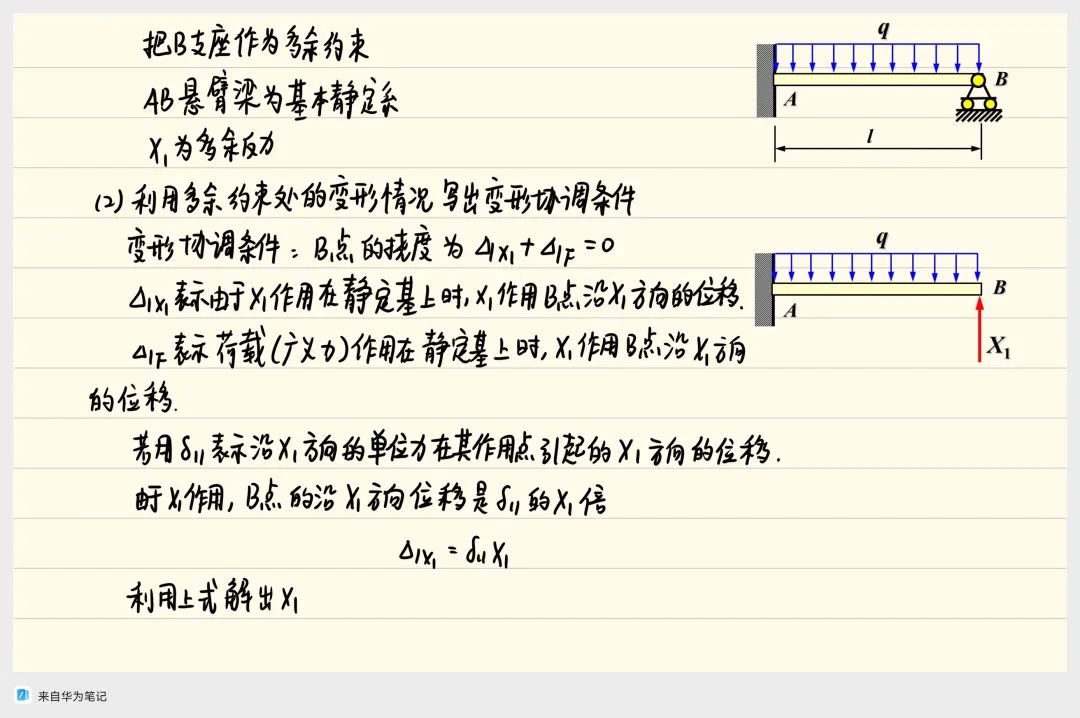 把B支座作为多余约束
AB悬臂梁为基本静定系
X₁为多余反力
(2) 利用多余约束处的变形情况写出变形协调条件
变形协调条件：B点的挠度为 Δ₁X₁+Δ₁F=0
Δ₁X₁表示由于X₁作用在静定基上时，X₁作用B点沿X₁方向的位移.
Δ₁F表示荷载(广义力)作用在静定基上时，X₁作用B点沿X₁方向
的位移.
若用δ₁₁表示沿X₁方向的单位力在其作用点引起的X₁方向的位移.
由于X₁作用，B点的沿X₁方向位移是δ₁₁的X₁倍
Δ₁X₁=δ₁₁X₁
利用上式解出X₁
q
A
B
l
q
A
B
X₁
来自华为笔记